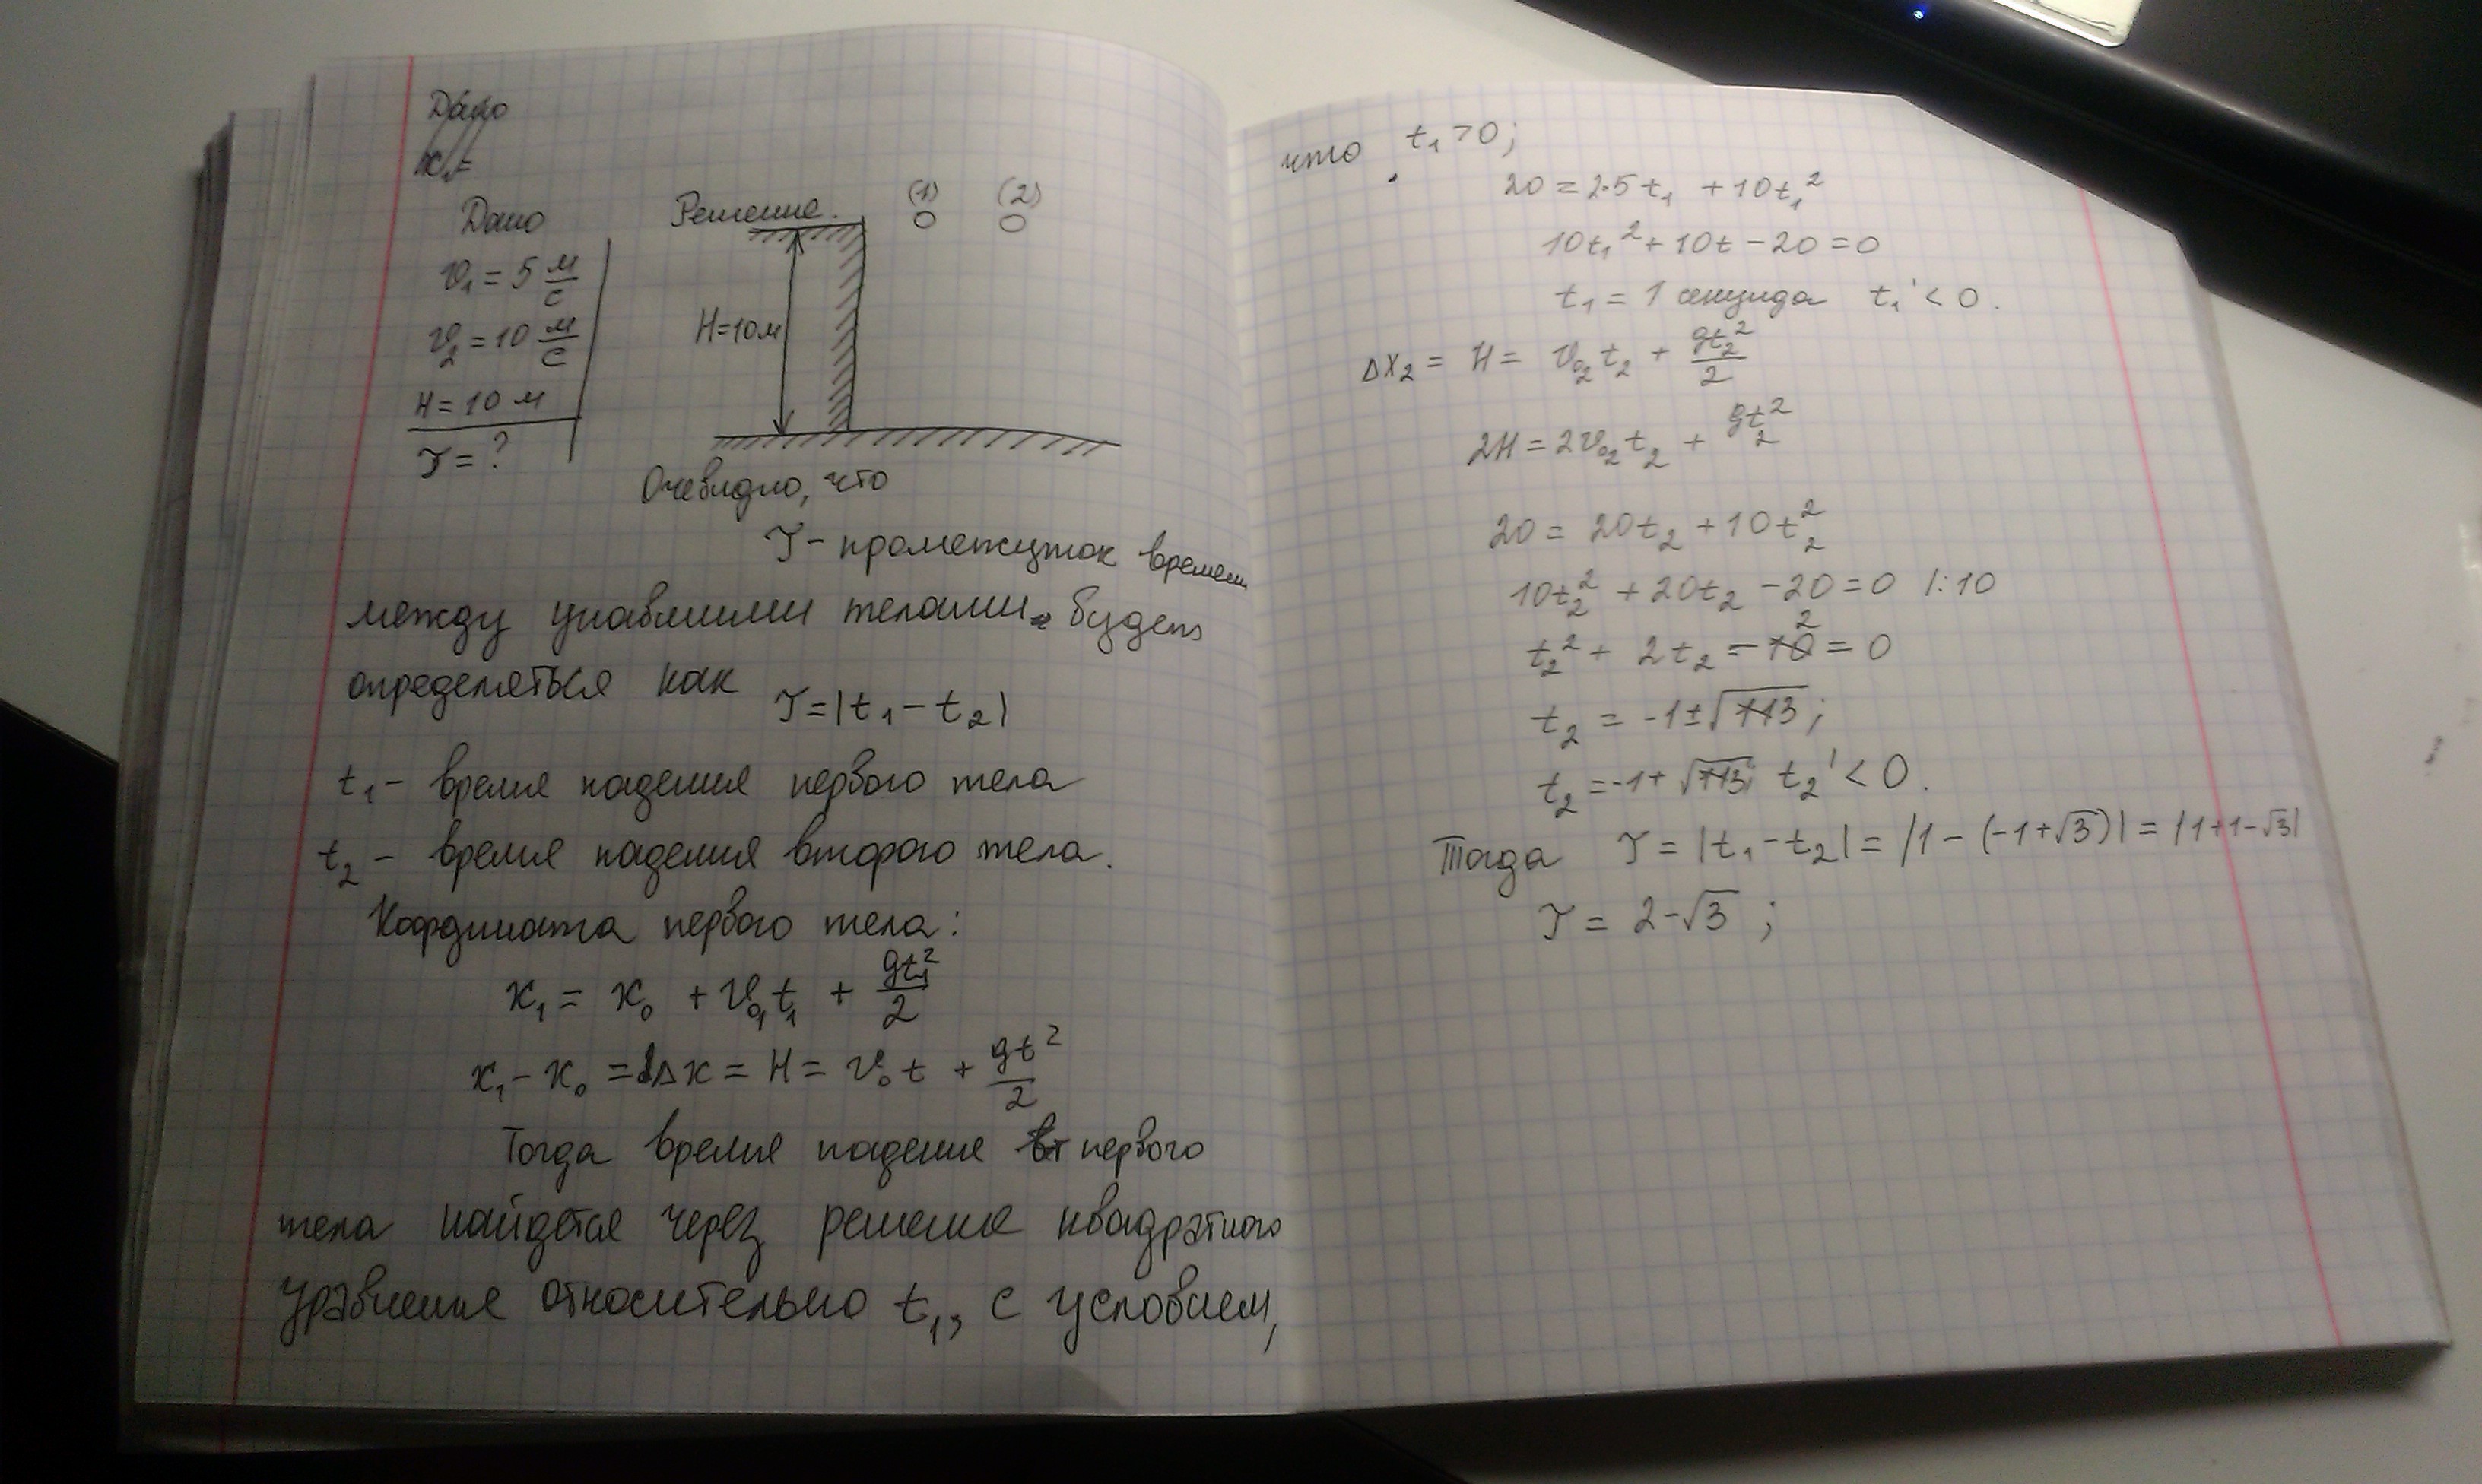 Дано
x₁=
Дано
v₁ = 5 м/с
v₂ = 10 м/с
H = 10 м
T = ?
Решение.
(1) (2)
H=10м
Очевидно, что
T - промежуток времени
между упавшими телами будет
определяться как
T=|t₁ - t₂|
t₁ - время падения первого тела
t₂ - время падения второго тела.
Координата первого тела:
x₁ = x₀ + v₀₁t₁ + gt₁²/2
x₁ - x₀ = Δx = H = v₀t + gt²/2
Тогда время падения первого
тела найдется через решение квадратного
уравнения относительно t₁, с условием,
что t₁ > 0;
20 = 2·5t₁ + 10t₁²
10t₁² + 10t - 20 = 0
t₁ = 1 секунда t₁' < 0.
Δx₂ = H = v₀₂t₂ + gt₂²/2
2H = 2v₀₂t₂ + gt₂²
20 = 20t₂ + 10t₂²
10t₂² + 20t₂ - 20 = 0 |:10
t₂² + 2t₂ - 2 = 0
t₂ = -1 ± √3;
t₂ = -1 + √3; t₂' < 0.
Тогда T = |t₁ - t₂| = |1 - (-1+√3)| = |1+1-√3|
T = 2 - √3 ;